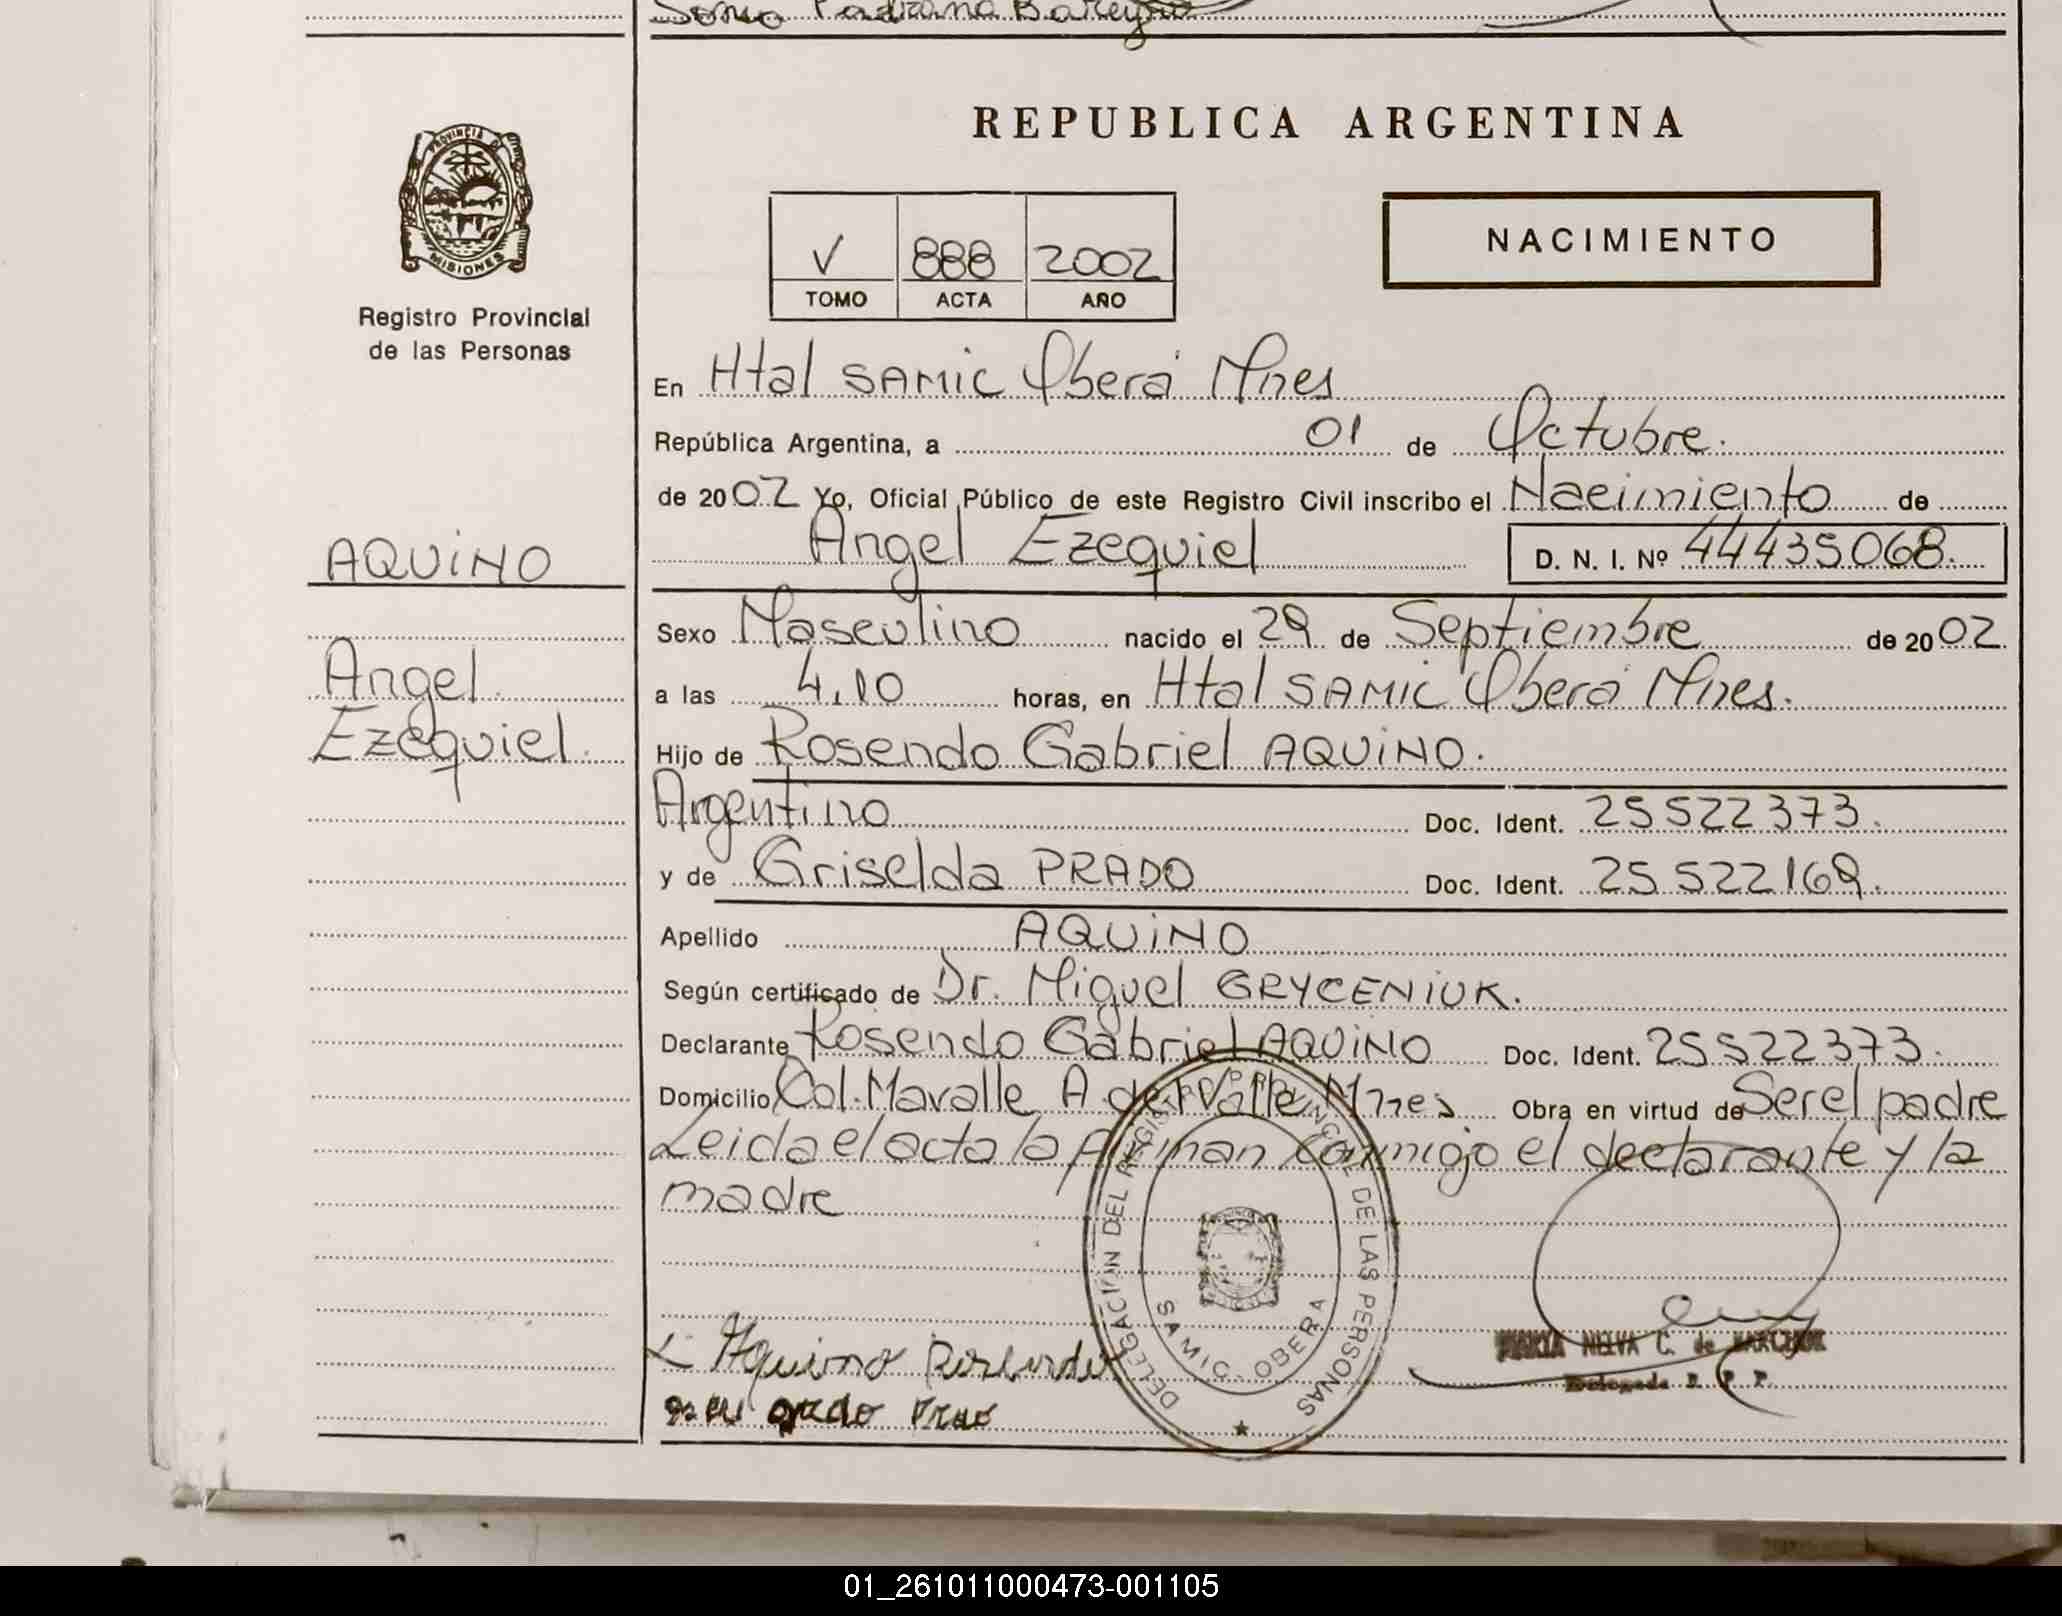 REPUBLICA ARGENTINA
PROVINCIA DE
MISIONES
Registro Provincial
de las Personas
V 888 2002
TOMO ACTA AÑO
NACIMIENTO
En Htal SAMIC Oberá Mnes
República Argentina, a 01 de Octubre.
de 2002 Yo, Oficial Público de este Registro Civil inscribo el Nacimiento de
Angel Ezequiel D. N. I. Nº 44435068.
AQUINO
Sexo Masculino nacido el 29 de Septiembre de 2002
Angel
Ezequiel.
a las 4,10 horas, en Htal SAMIC Oberá Mnes.
Hijo de Rosendo Gabriel AQUINO.
Argentino Doc. Ident. 25522373.
y de Griselda PRADO Doc. Ident. 25522169.
Apellido AQUINO
Según certificado de Dr. Miguel GRYCENIUK.
Declarante Rosendo Gabriel AQUINO Doc. Ident. 25522373.
Domicilio Col. Mavalle A. del Valle Mnes Obra en virtud de Ser el padre
Leida el acta la firman conmigo el declarante y la
madre
DELEGACION DEL REGISTRO PROVINCIAL DE LAS PERSONAS
SAMIC. OBERA
Aquino Rosendo
NELVA C. de
01_261011000473-001105